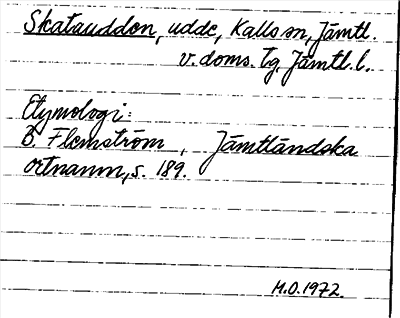 Skatauddon, udde, Kalls sn, Jämtl.
v. doms. tg. Jämtl. l.
Etymologi:
B. Flemström, Jämtländska
ortnamn, s. 189.
M.O. 1972.